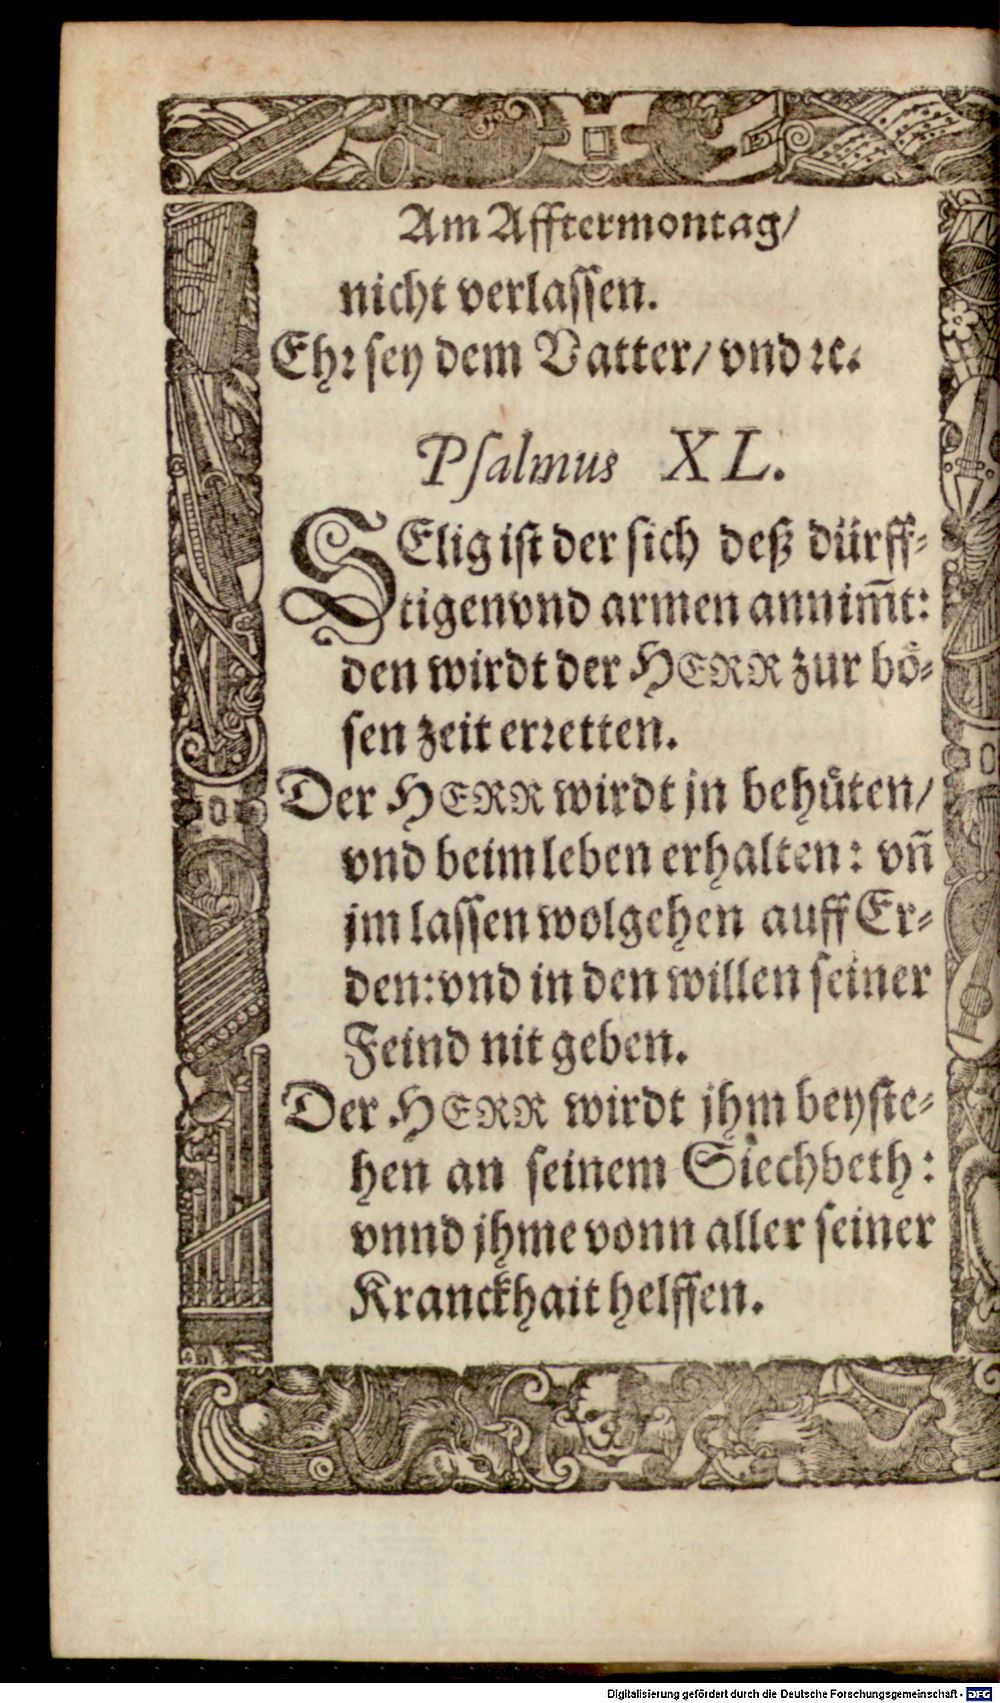 Am Afftermontag/
nicht verlaſſen.
Ehꝛ ſey dem Vatter/ vnd ꝛc.
Pſalmus XL.
SElig iſt der ſich deß dürff⸗
tigen vnd armen annim̃t:
den wirdt der HERR zur boͤ⸗
ſen zeit erꝛetten.
Der HERR wirdt jn behuͤten/
vnd beim leben erhalten: vñ
jm laſſen wolgehen auff Er⸗
den: vnd in den willen ſeiner
Feind nit geben.
Der HERR wirdt jhm beyſte⸗
hen an ſeinem Siechbeth:
vnnd jhme vonn aller ſeiner
Kranckhait helffen.
Digitalisierung gefördert durch die Deutsche Forschungsgemeinschaft - DFG